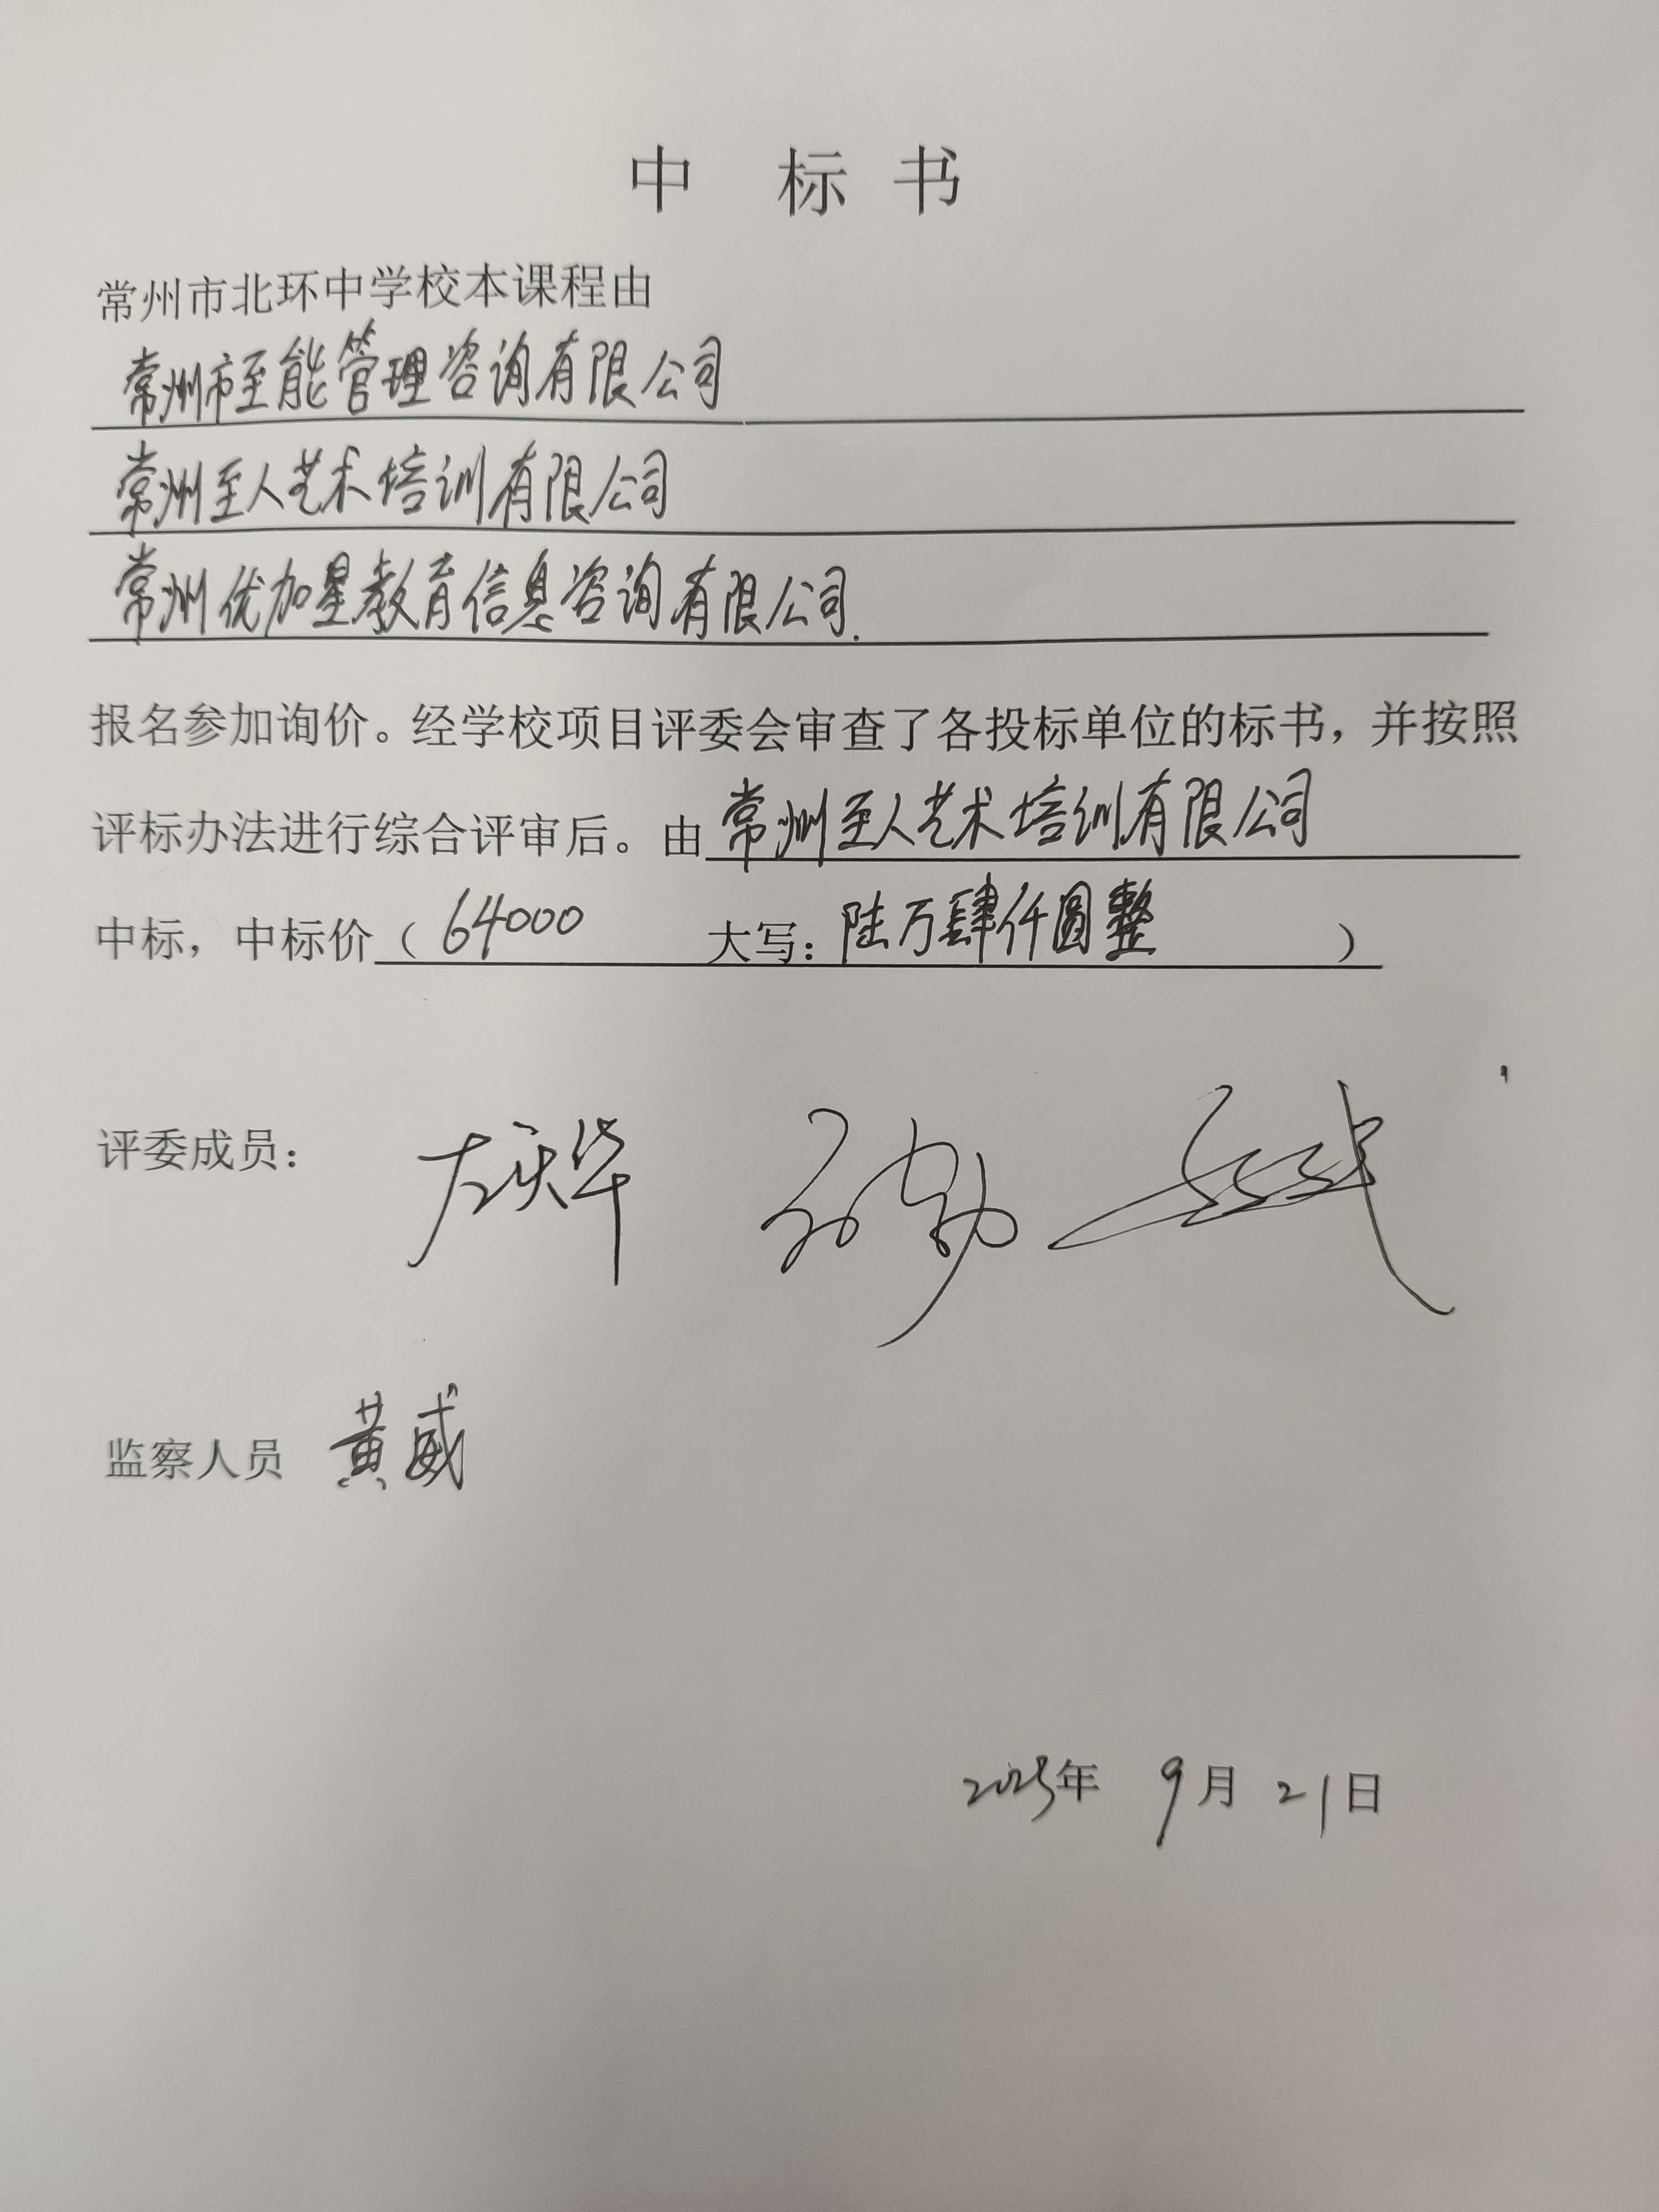 中 标 书
常州市北环中学校本课程由
常州市至能管理咨询有限公司
常州至人艺术培训有限公司
常州优加星教育信息咨询有限公司.
报名参加询价。经学校项目评委会审查了各投标单位的标书，并按照
评标办法进行综合评审后。由常州至人艺术培训有限公司
中标，中标价（64000 大写：陆万肆仟圆整）
评委成员： 左庆华
监察人员 黄威
2023年 9月 21日